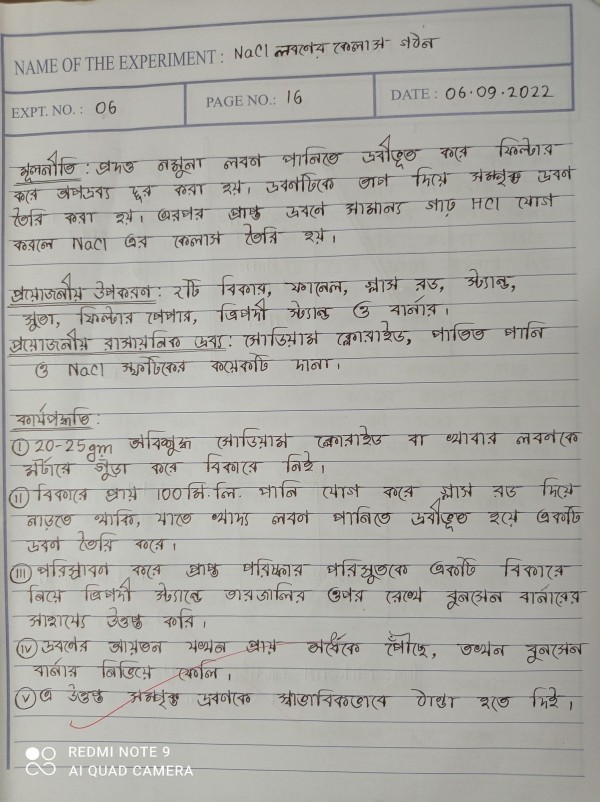 NAME OF THE EXPERIMENT : NaCl লবনের কেলাস গঠন
EXPT. NO. : 06
PAGE NO.: 16
DATE : 06.09.2022
মূলনীতি : প্রদত্ত নমুনা লবন পানিতে দ্রবীভূত করে ফিল্টার
করে অপদ্রব্য দূর করা হয়। দ্রবনটিকে তাপ দিয়ে সম্পৃক্ত দ্রবন
তৈরি করা হয়। এরপর প্রাপ্ত দ্রবনে সামান্য গাঢ় HCl যোগ
করলে NaCl এর কেলাস তৈরি হয়।
প্রয়োজনীয় উপকরন : ২টি বিকার, ফানেল, গ্লাস রড, স্ট্যান্ড,
সুতা, ফিল্টার পেপার, ত্রিপদী স্ট্যান্ড ও বার্নার।
প্রয়োজনীয় রাসায়নিক দ্রব্য : সোডিয়াম ক্লোরাইড, পাতিত পানি
ও NaCl স্ফটিকের কয়েকটি দানা।
কার্যপদ্ধতি :
(i) 20-25gm অবিশুদ্ধ সোডিয়াম ক্লোরাইড বা খাবার লবনকে
মর্টারে গুঁড়া করে বিকারে নিই।
(ii) বিকারে প্রায় 100 মি.লি. পানি যোগ করে গ্লাস রড দিয়ে
নাড়তে থাকি, যাতে খাদ্য লবন পানিতে দ্রবীভূত হয়ে একটি
দ্রবন তৈরি করে।
(iii) পরিস্রাবন করে প্রাপ্ত পরিষ্কার পরিস্রুতকে একটি বিকারে
নিয়ে ত্রিপদী স্ট্যান্ডে তারজালির ওপর রেখে বুনসেন বার্নারের
সাহায্যে উত্তপ্ত করি।
(iv) দ্রবনের আয়তন যখন প্রায় অর্ধেকে পৌঁছে, তখন বুনসেন
বার্নার নিভিয়ে ফেলি।
(v) এ উত্তপ্ত সম্পৃক্ত দ্রবনকে স্বাভাবিকভাবে ঠান্ডা হতে দিই।
REDMI NOTE 9
AI QUAD CAMERA